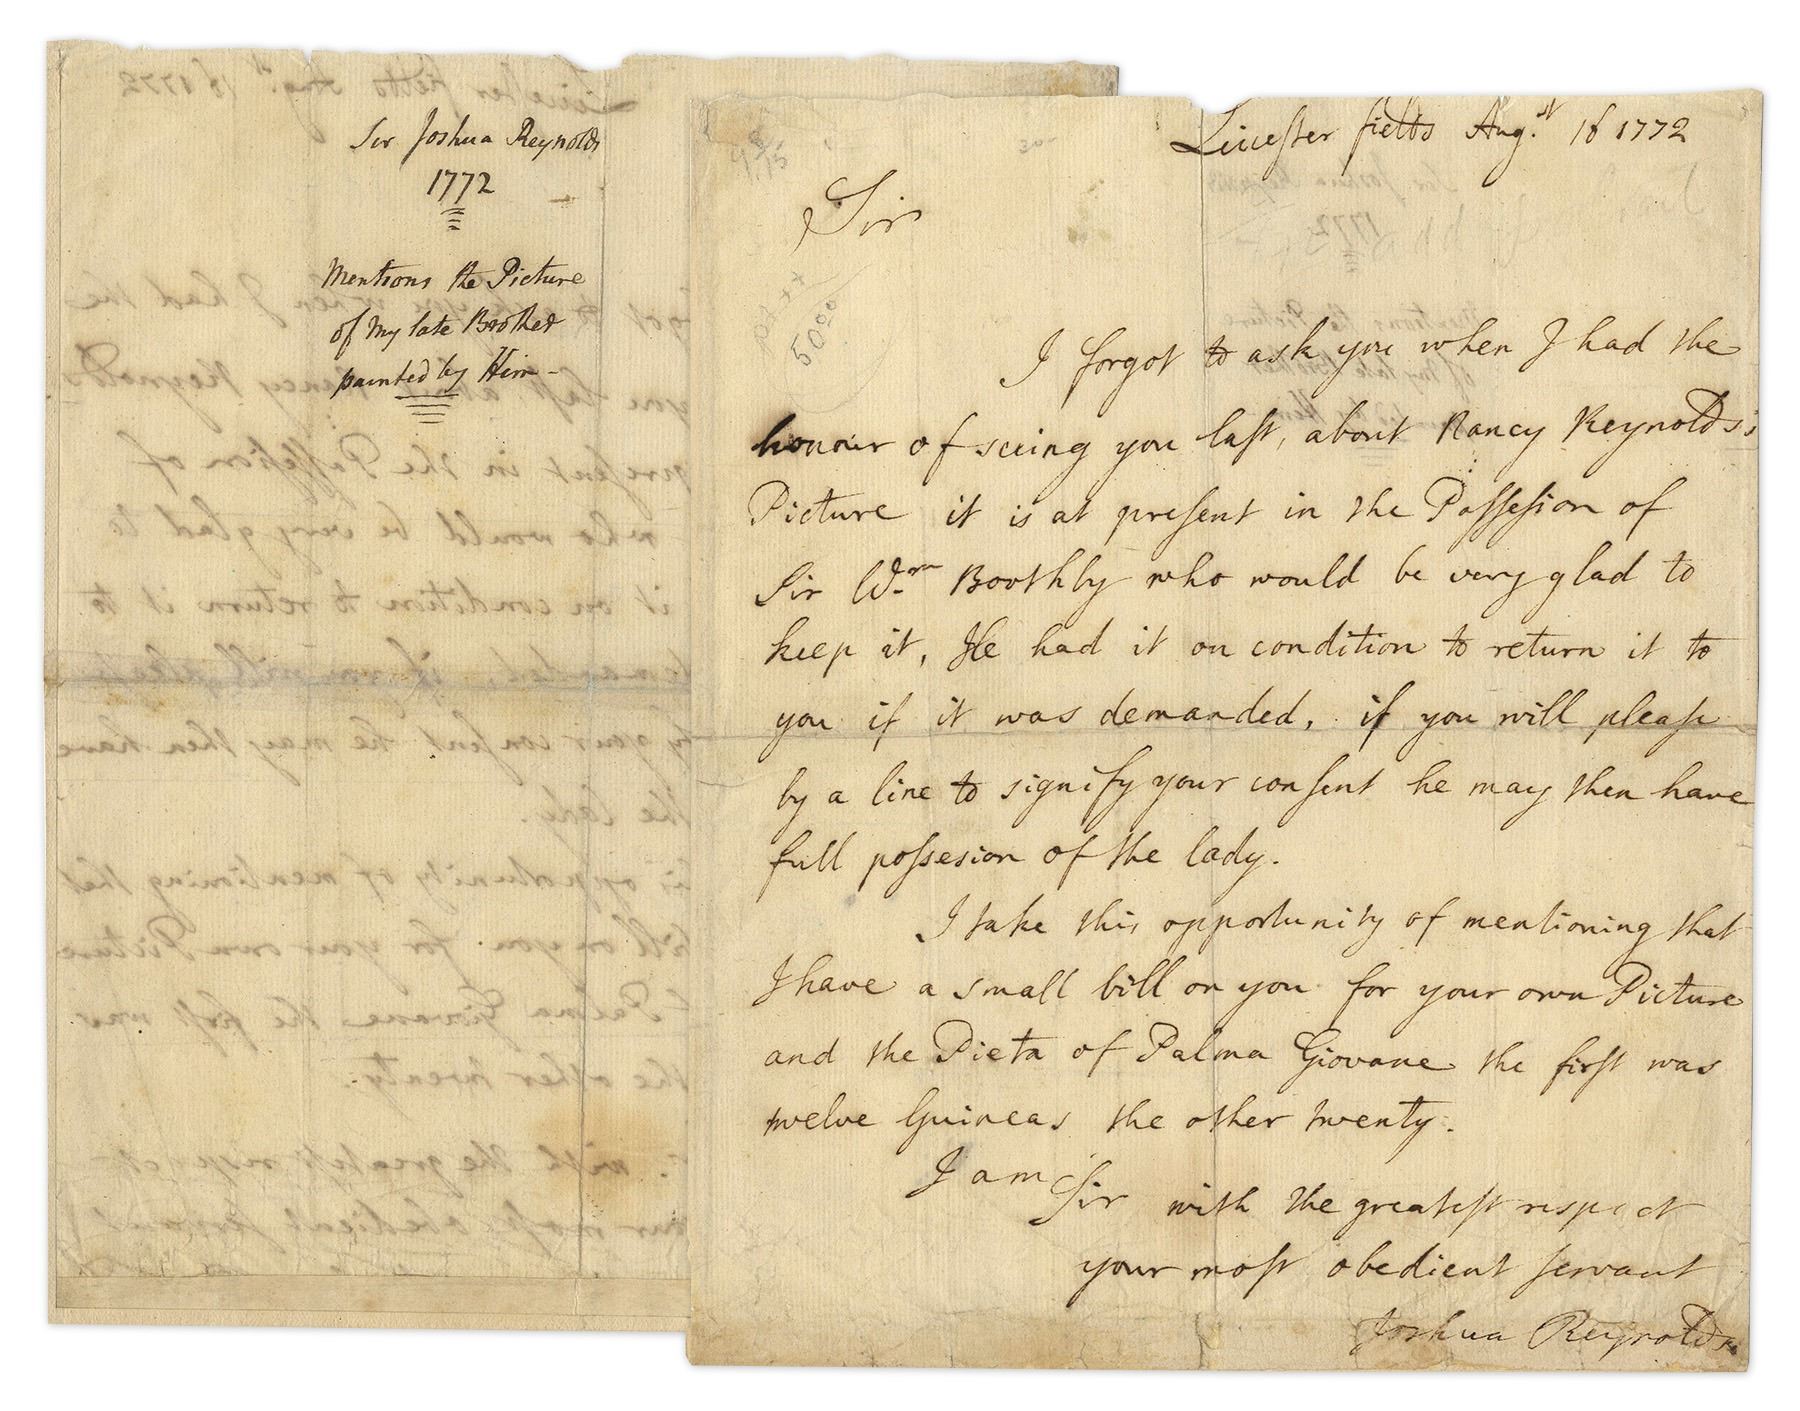 Sir Joshua Reynolds
1772
Mentions the Picture
of my late Brother
painted by Him -
Leicester fields Aug.st 18 1772
Sir
I forgot to ask you when I had the
honour of seeing you last, about Nancy Reynolds's
Picture it is at present in the Possession of
Sir Wm Boothby who would be very glad to
keep it, He had it on condition to return it to
you if it was demanded, if you will please
by a line to signify your consent he may then have
full possesion of the lady.
I take this opportunity of mentioning that
I have a small bill on you for your own Picture
and the Pieta of Palma Giovane the first was
twelve Guineas the other twenty.
I am Sir with the greatest respect
your most obedient servant
Joshua Reynolds.
5000